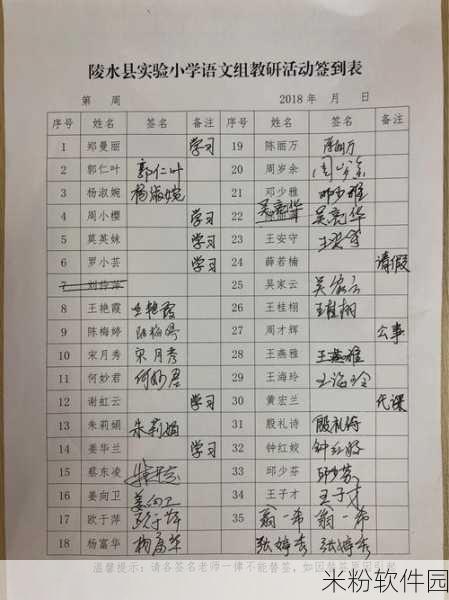 陵水县实验小学语文组教研活动签到表
第 周 2018年 月 日
序号 姓名 签名 备注 序号 姓名 签名 备注
1 郑曼丽 学习 19 陈丽万
2 郭仁叶 郭仁叶 20 周岁余 周岁余
3 杨淑婉 杨淑婉 21 邓少雅 邓少雅
4 周小樱 学习 22 吴亮华 吴亮华
5 莫英妹 学习 23 王安守
6 罗小芸 学习 24 薛若楠 请假
7 25 吴家云 吴家云
8 王艳霞 王艳霞 26 王桂栩 王桂栩
9 陈梅婷 陈梅婷 27 周才辉 公事
10 宋月秀 宋月秀 28 王燕雅 王燕雅
11 何妙君 何妙君 29 王海玲 王海玲
12 谢虹云 学习 30 黄宏兰 代课
13 朱莉娟 朱莉娟 31 殷礼诗 殷礼诗
14 姜华兰 学习 32 钟红姣 钟红姣
15 蔡东凌 33 邱少芬 邱少芬
16 姜向卫 姜向卫 34 王子才 王子才
17 欧于萍 欧于萍 35 翁一希 翁一希
18 杨富华 杨富华 张婷秀 张婷秀
温馨提示：请各签名老师一律不能替签，如因替签原因引起
米粉软件园